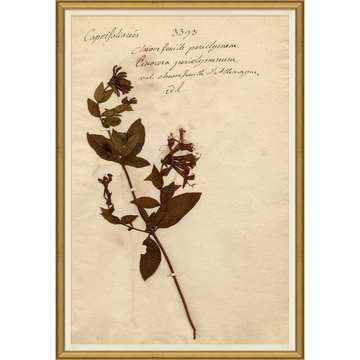 Caprifoliacées 3393
chevrefeuille periclymene.
Lonicera periclymenum.
vul. chevrefeuille d'Allemagne,